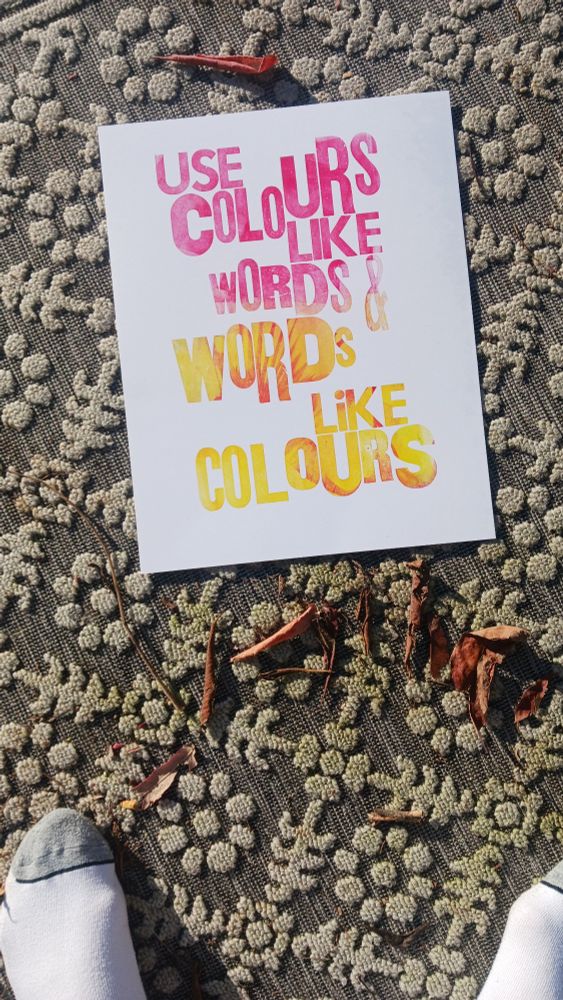 USE
COLOURS
LIKE
WORDS &
WORDS
LiKE
COLOURS